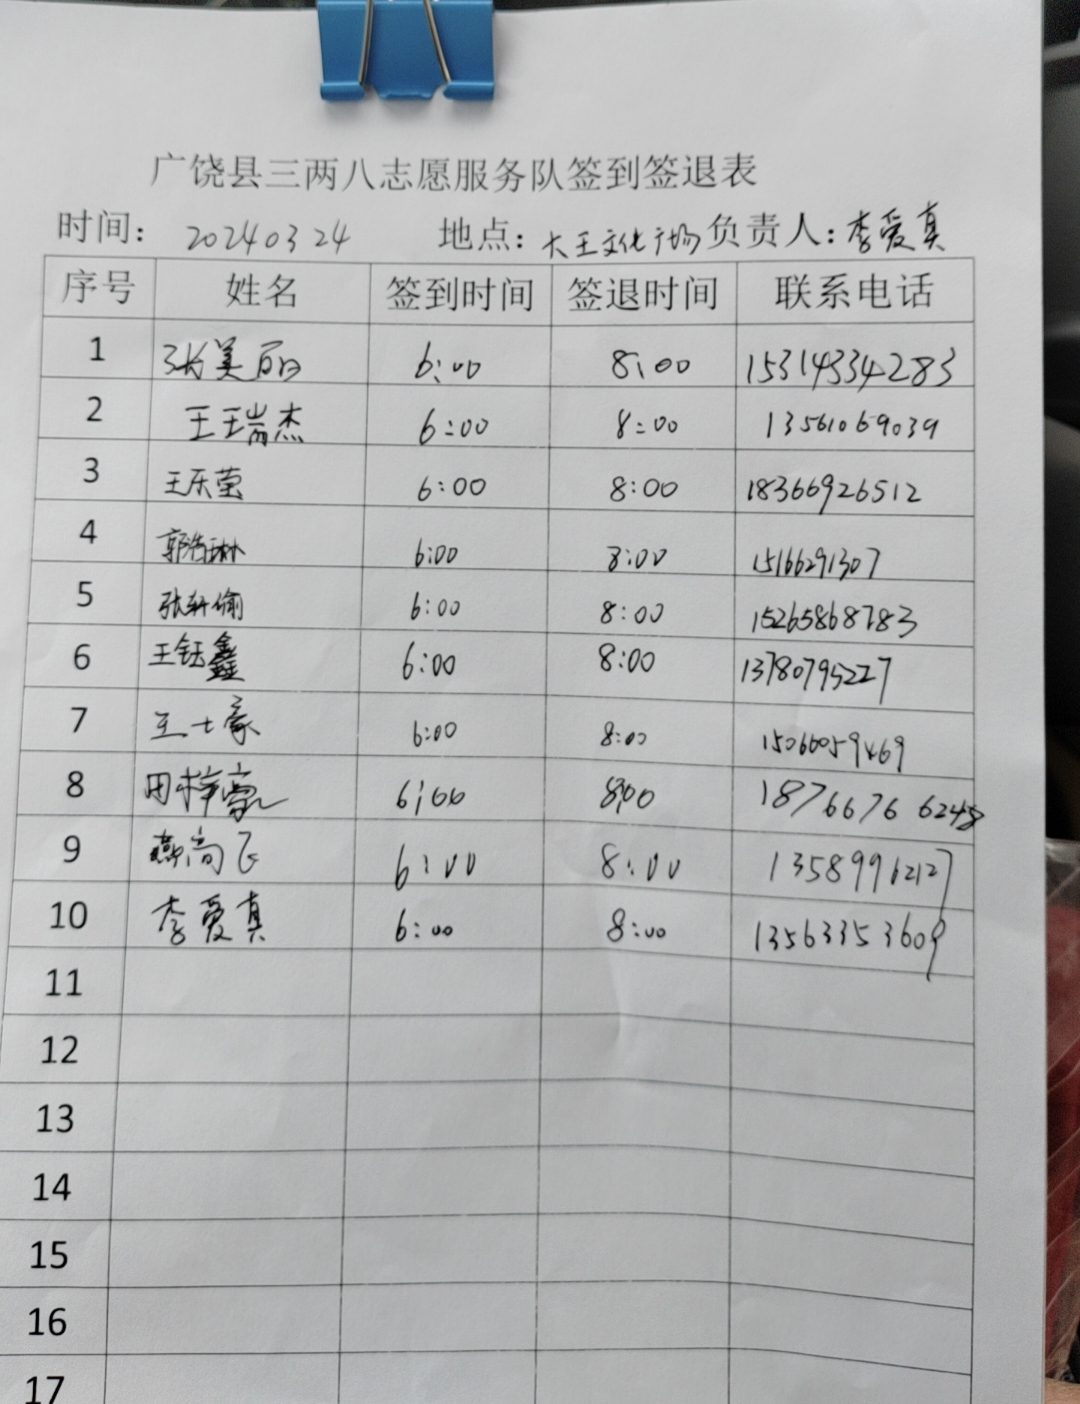 广饶县三两八志愿服务队签到签退表
时间: 20240324 地点: 大王文化广场 负责人: 李爱真
序号 姓名 签到时间 签退时间 联系电话
1 张美丽 6:00 8:00 15314334283
2 王瑞杰 6:00 8:00 13561069039
3 王乐莹 6:00 8:00 18366926512
4 6:00 8:00 15166291307
5 6:00 8:00 15265868783
6 王钰鑫 6:00 8:00 13780795227
7 王士豪 6:00 8:00 15066059469
8 田梓豪 6:00 8:00 18766766248
9 燕尚飞 6:00 8:00 13589962127
10 李爱真 6:00 8:00 13563353609
11
12
13
14
15
16
17